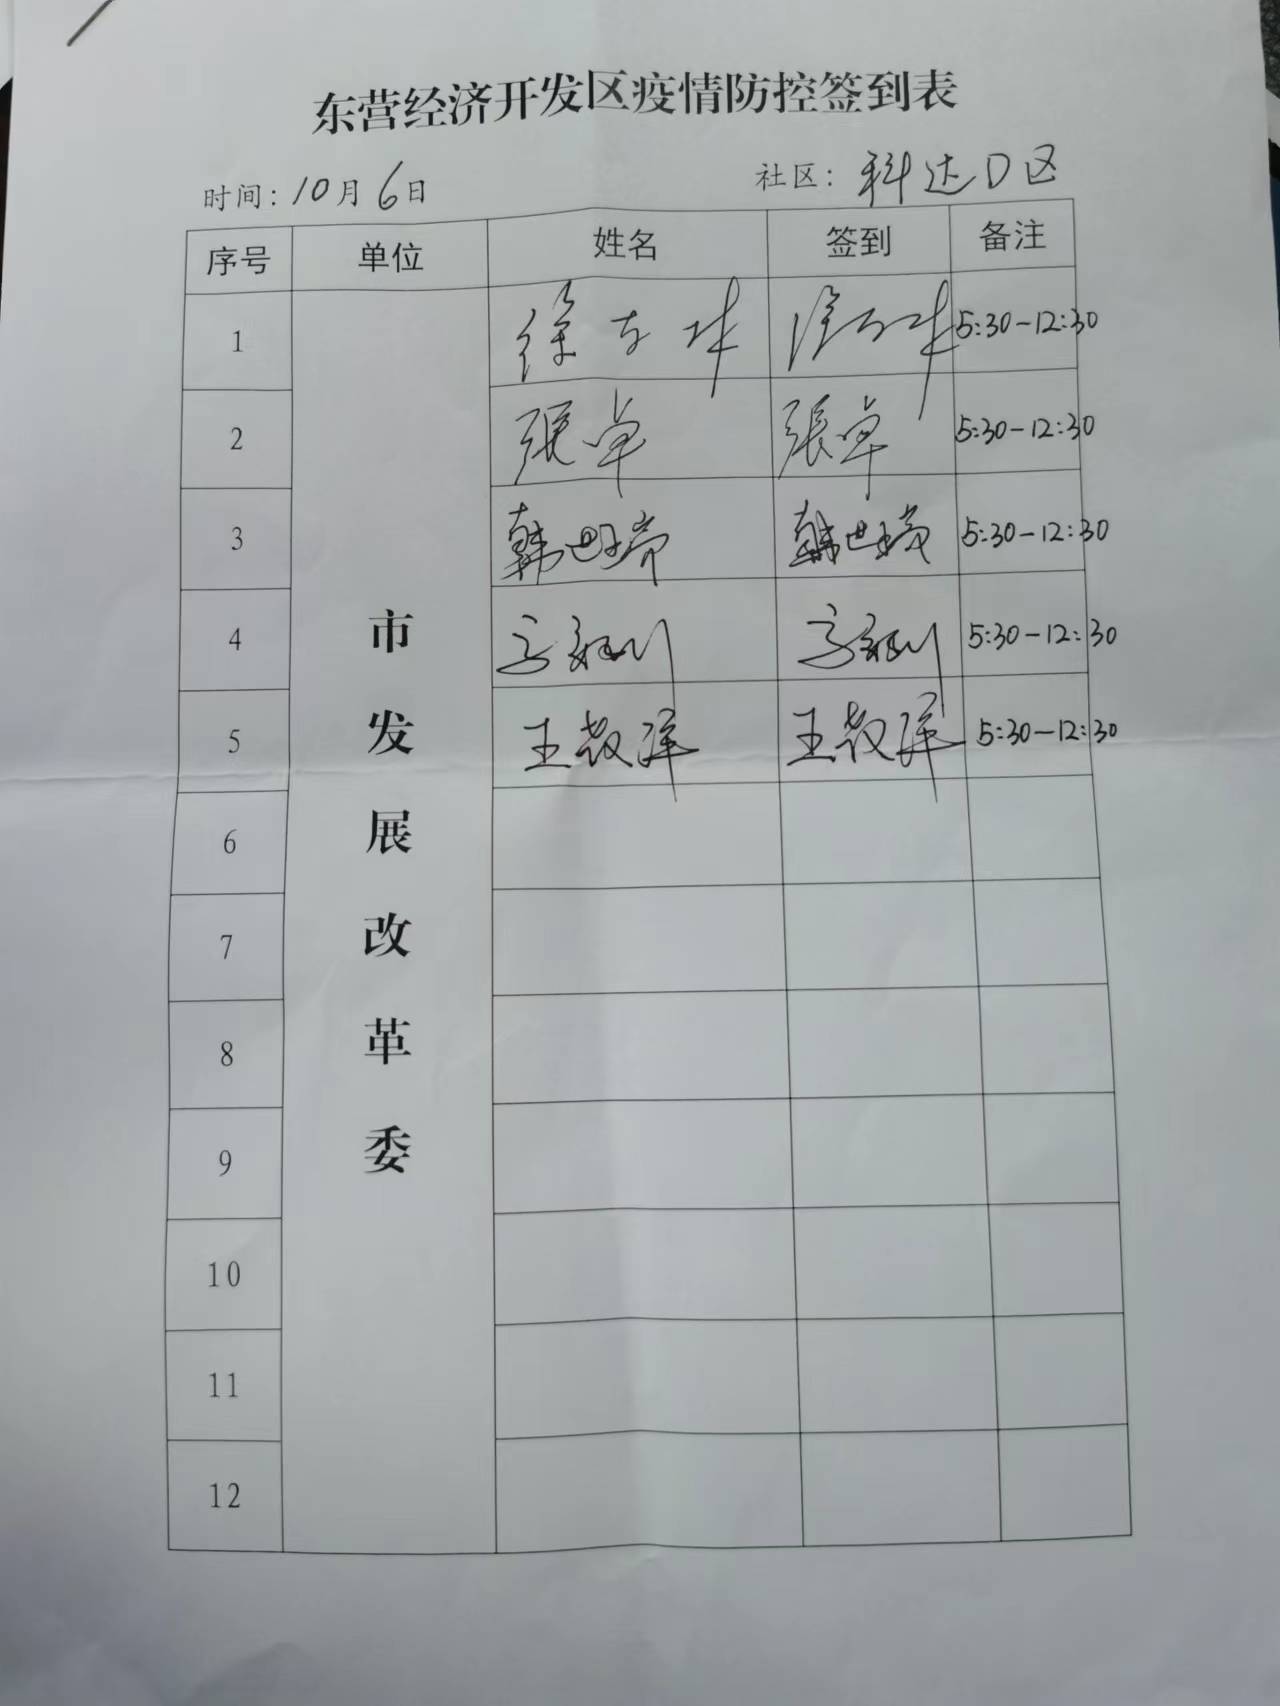 东营经济开发区疫情防控签到表
时间：10月6日 社区：科达D区
序号 单位 姓名 签到 备注
1 徐 5:30-12:30
2 張卓 張卓 5:30-12:30
3 韩世瑞 韩世瑞 5:30-12:30
4 5:30-12:30
5 王 洋 王 洋 5:30-12:30
市发展改革委
6
7
8
9
10
11
12